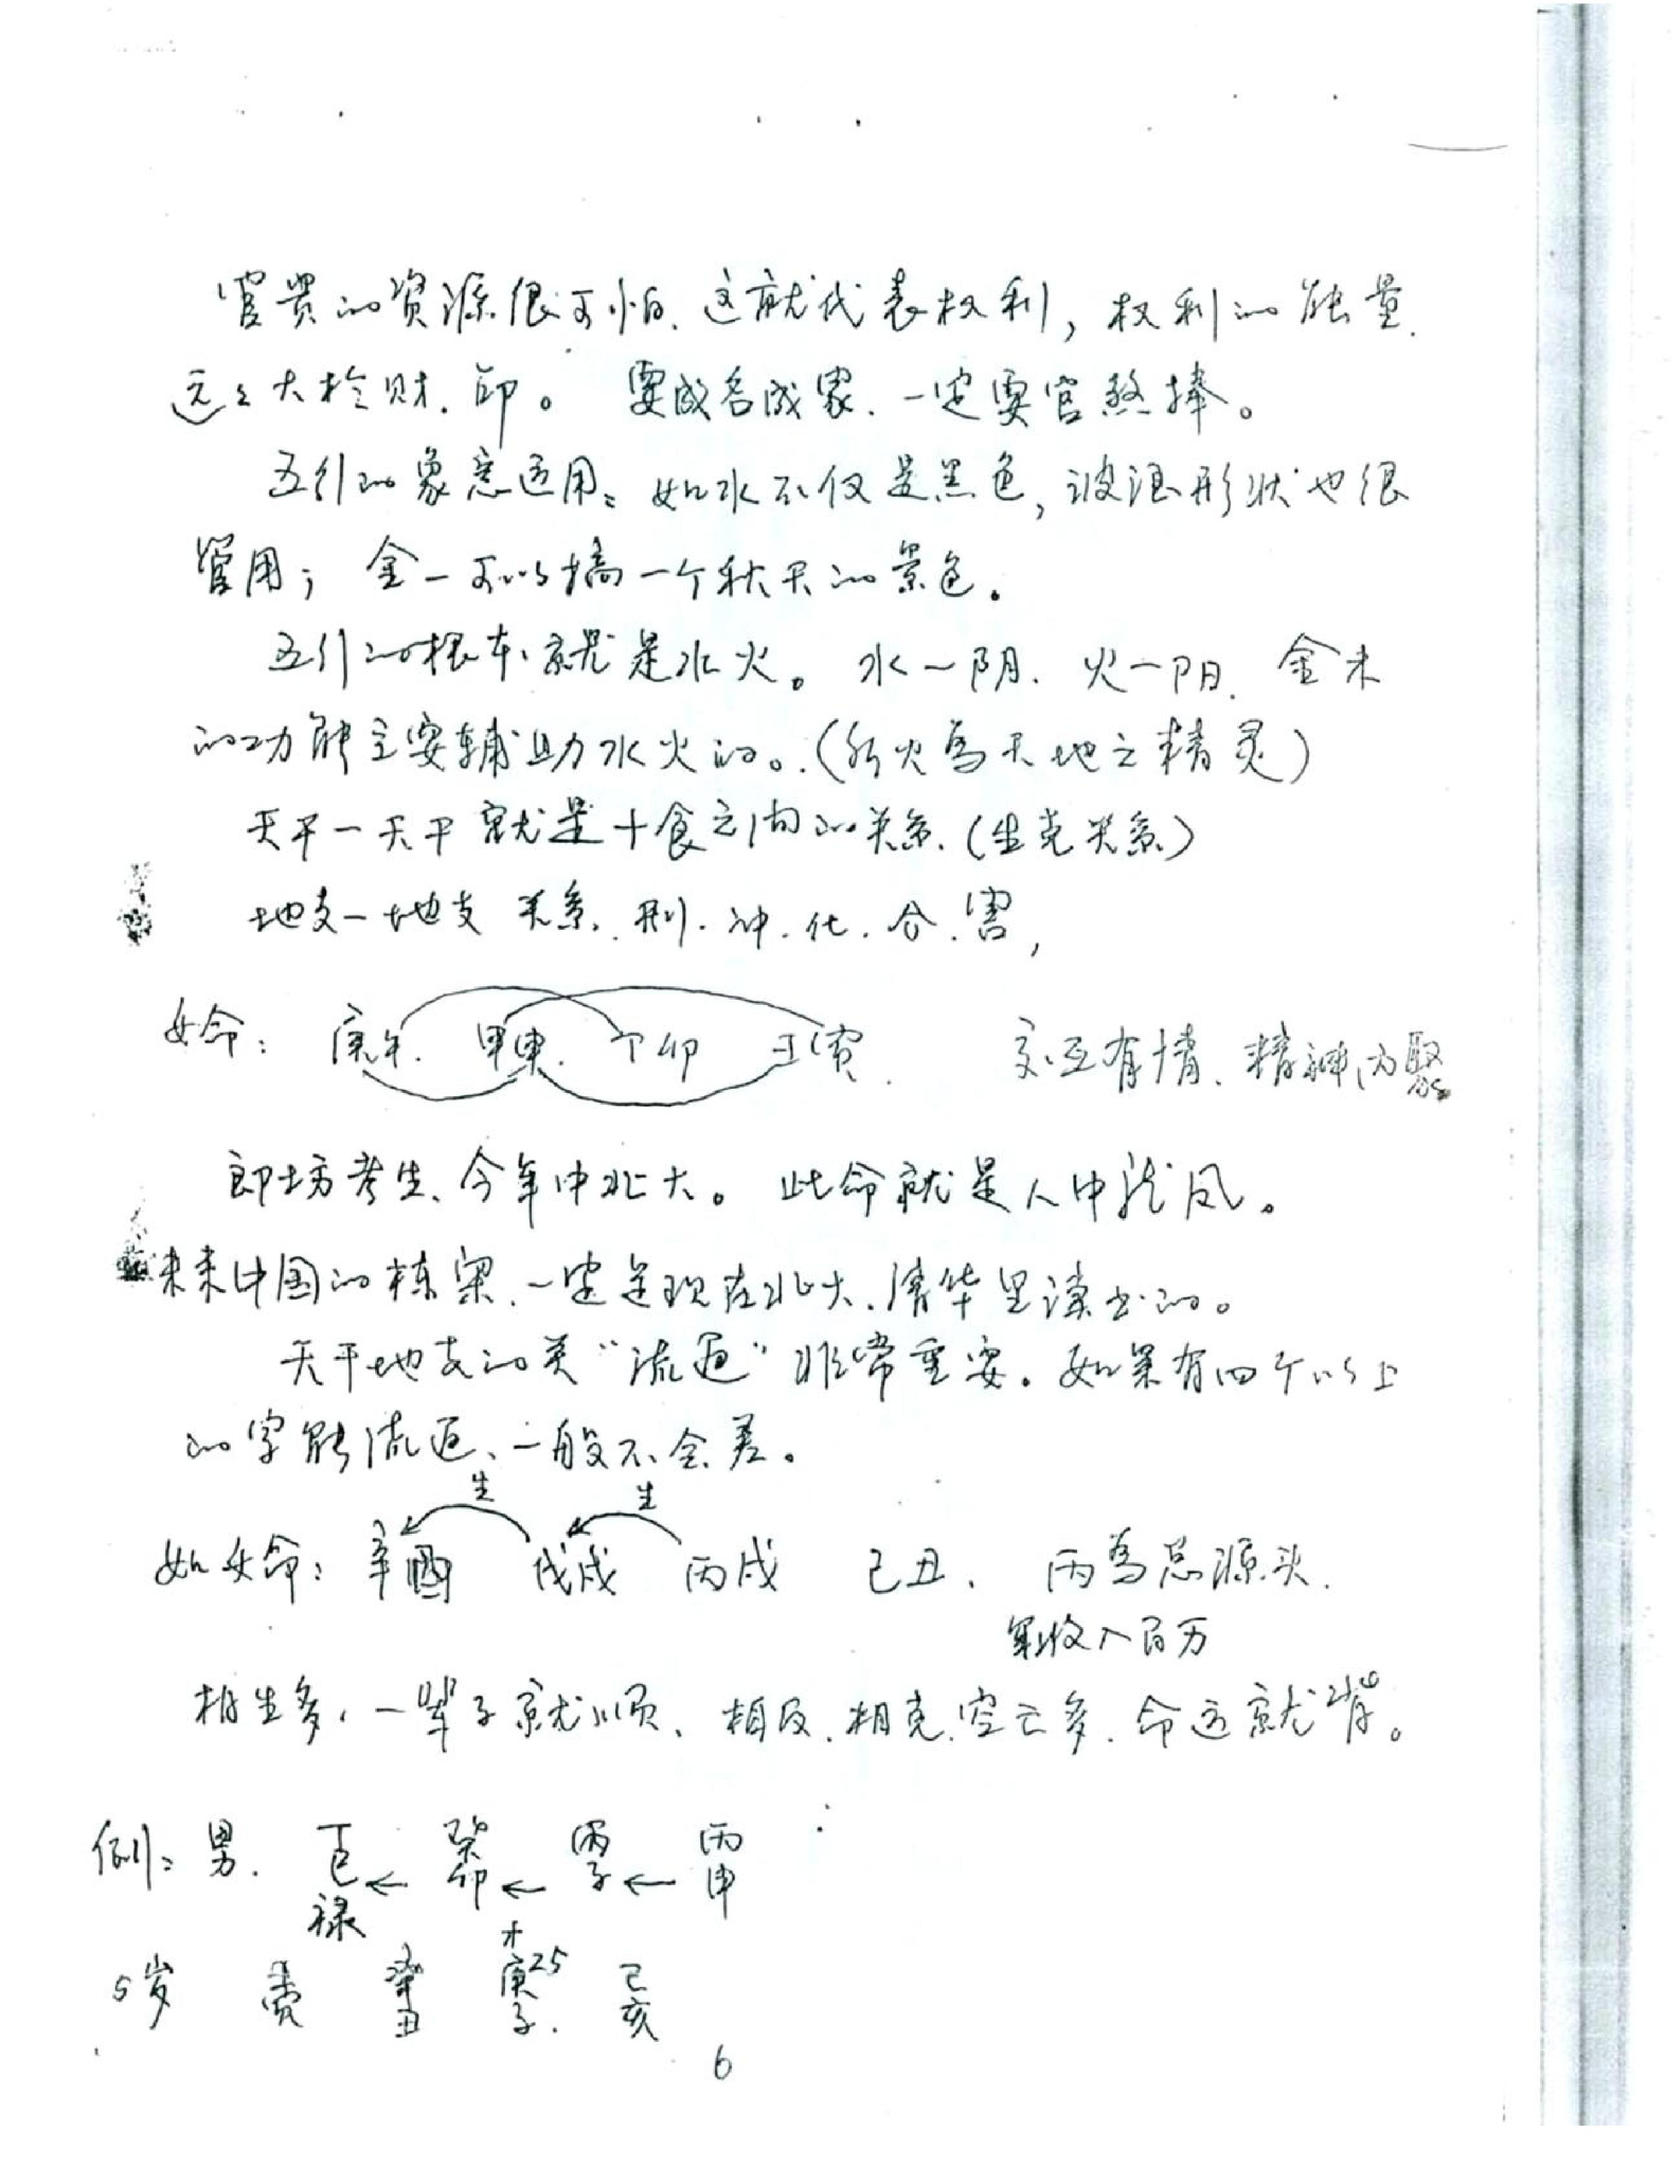 官贵的资源很可怕.这就代表权利,权利的能量.
远远大于财.印。 要成名成家.一定要官煞捧。
五行的象意运用:如水不仅是黑色,波浪形状也很
管用;金一可以搞一个秋天的景色。
五行的根本就是水火。水一阴.火一阳.金木
的功能主要辅助水火的。(水火为天地之精灵)
天干一天干就是十食之间的关系.(生克关系)
地支一地支 关系.刑.冲.化.合.害,
女命: 庚午. 甲申. 丁卯 壬寅. 交互有情、精神内聚
郎坊考生、今年中北大。此命就是人中龙凤。
未来中国的栋梁.一定是现在北大.清华里读书的。
天干地支的美“流通”非常重要。如果有四个以上
的字能流通、一般不会差。
生 生
如女命: 辛酉 戊戌 丙戌 己丑. 丙为总源头.
年收入百万
相生多,一辈子就顺、相反.相克.空亡多.命运就背。
例:男. 丁巳 ← 癸卯 ← 丙子 ← 丙申
禄
才
5岁 壬寅 辛丑 庚子 25 己亥
6